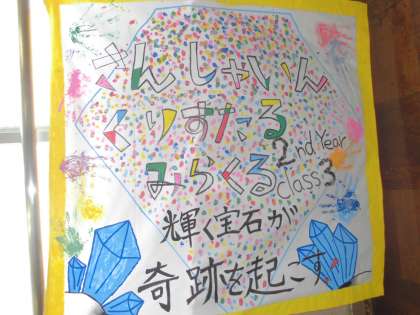 さんしゃいん
くりすたる
みらくる
2nd Year
class 3
輝く宝石が
奇跡を起こす